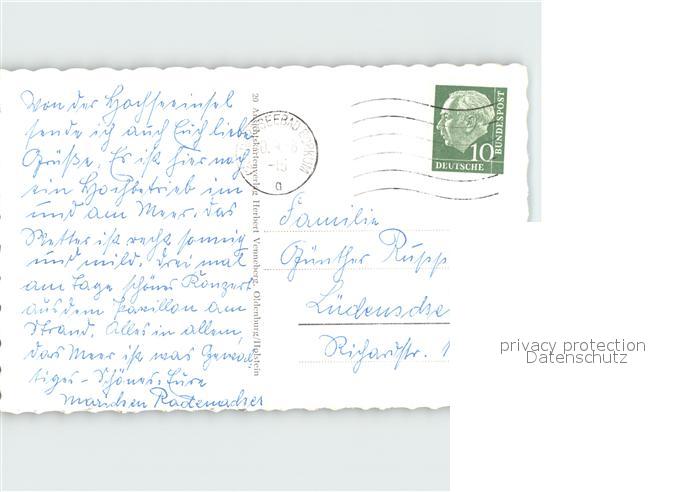 Von der Hochseeinsel
sende ich auch Euch liebe
Grüße. Es ist hier noch
ein Hochbetrieb im
und am Meer. Das
Wetter ist recht sonnig
und mild. Drei mal
am Tage schönes Konzert
aus dem Pavillon am
Strand. Alles in allem,
das Meer ist was Gewal-
tiges - Schönes. Eure
Marichen Rademacher
20 Ansichtskartenverlag Herbert Venneberg, Oldenburg/Holstein
a
10
DEUTSCHE
BUNDESPOST
Familie
Günther Rupp
Lüdensche
Richardstr. 1
privacy protection
Datenschutz